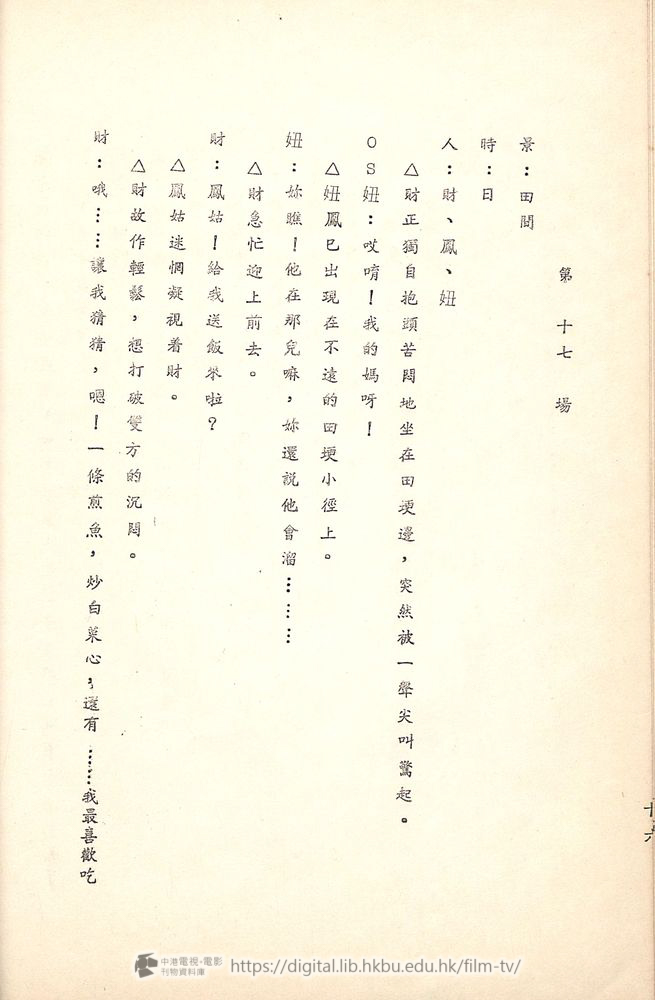 第十七場
景：田間
時：日
人：財、鳳、妞
△財正獨自抱頭苦悶地坐在田埂邊，突然被一聲尖叫驚起。
OS妞：哎唷！我的媽呀！
△妞鳳已出現在不遠的田埂小徑上。
妞：妳瞧！他在那兒嘛，妳還説他會溜………
△財急忙迎上前去。
財：鳳姑！給我送飯來啦？
△鳳姑迷惘凝視着財。
△財故作輕鬆，想打破雙方的沉悶。
財：哦……讓我猜猜，嗯！一條煎魚，炒白菜心，還有……我最喜歡吃
中港電視·電影
刊物資料庫
https://digital.lib.hkbu.edu.hk/film-tv/